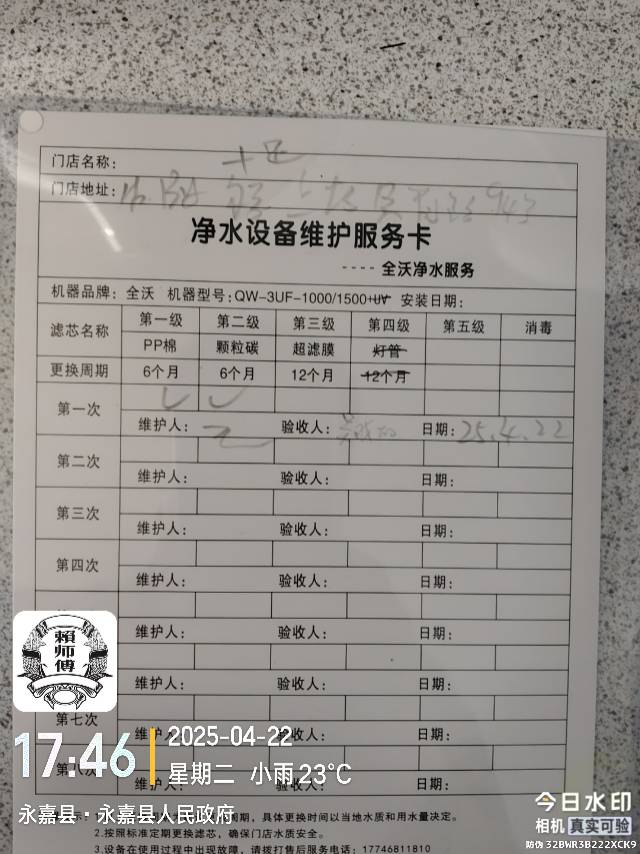 门店名称：
门店地址：
净水设备维护服务卡
----全沃净水服务
机器品牌：全沃 机器型号：QW-3UF-1000/1500+UV 安装日期：
滤芯名称 第一级 第二级 第三级 第四级 第五级 消毒
PP棉 颗粒碳 超滤膜 灯管
更换周期 6个月 6个月 12个月 12个月
第一次
维护人： 验收人： 日期：25.4.22
第二次
维护人： 验收人： 日期：
第三次
维护人： 验收人： 日期：
第四次
维护人： 验收人： 日期：
维护人： 验收人： 日期：
维护人： 验收人： 日期：
第七次
维护人： 验收人： 日期：
第八次
维护人： 验收人： 日期：
賴师傅
17:46
2025-04-22
星期二 小雨 23°C
永嘉县·永嘉县人民政府
期，具体更换时间以当地水质和用水量决定。
2.按照标准定期更换滤芯，确保门店水质安全。
3.设备在使用过程中出现故障，请拨打售后服务电话：17746811810
今日水印
相机 真实可验
防伪 32BWR3B222XCK9